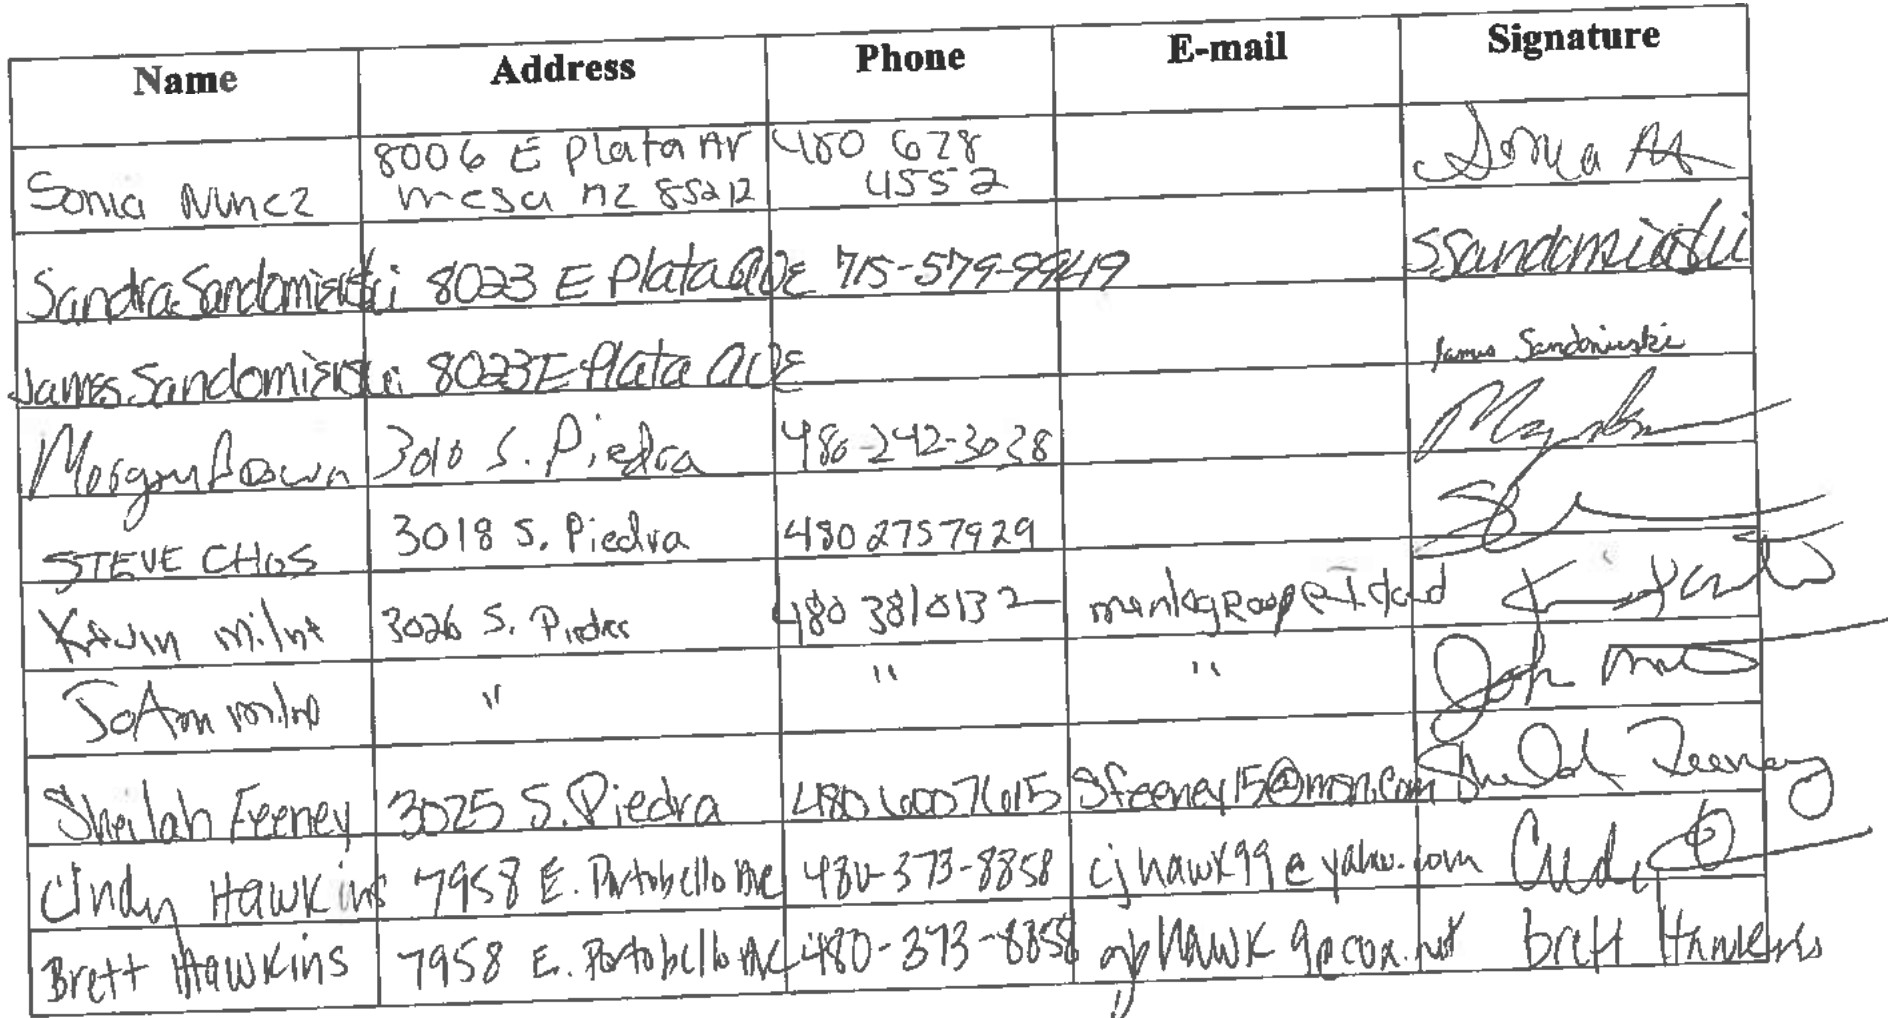 Name Address Phone E-mail Signature
8006 E Plata Av 480 628
Sonia Nunez mesa AZ 85212 4552 Sonia
Sandra Sandomierski 8023 E Plata AVE 715-579-9949 S Sandomierski
James Sandomierski 8023 E Plata AVE James Sandomierski
Morgan Brown 3010 S. Piedra 480-242-3038
STEVE CHOS 3018 S. Piedra 480 2757929
Kevin Milne 3026 S. Piedra 480 3810132
JoAnn Milne " " "
Sheilah Feeney 3025 S. Piedra 480 6007615 Sfeeney15@msn.com Sheilah Feeney
Cindy Hawkins 7958 E. Portobello Ave 480-373-8858 cjhawk99@yahoo.com Cindy
Brett Hawkins 7958 E. Portobello Ave 480-373-8858 brett Hawkins